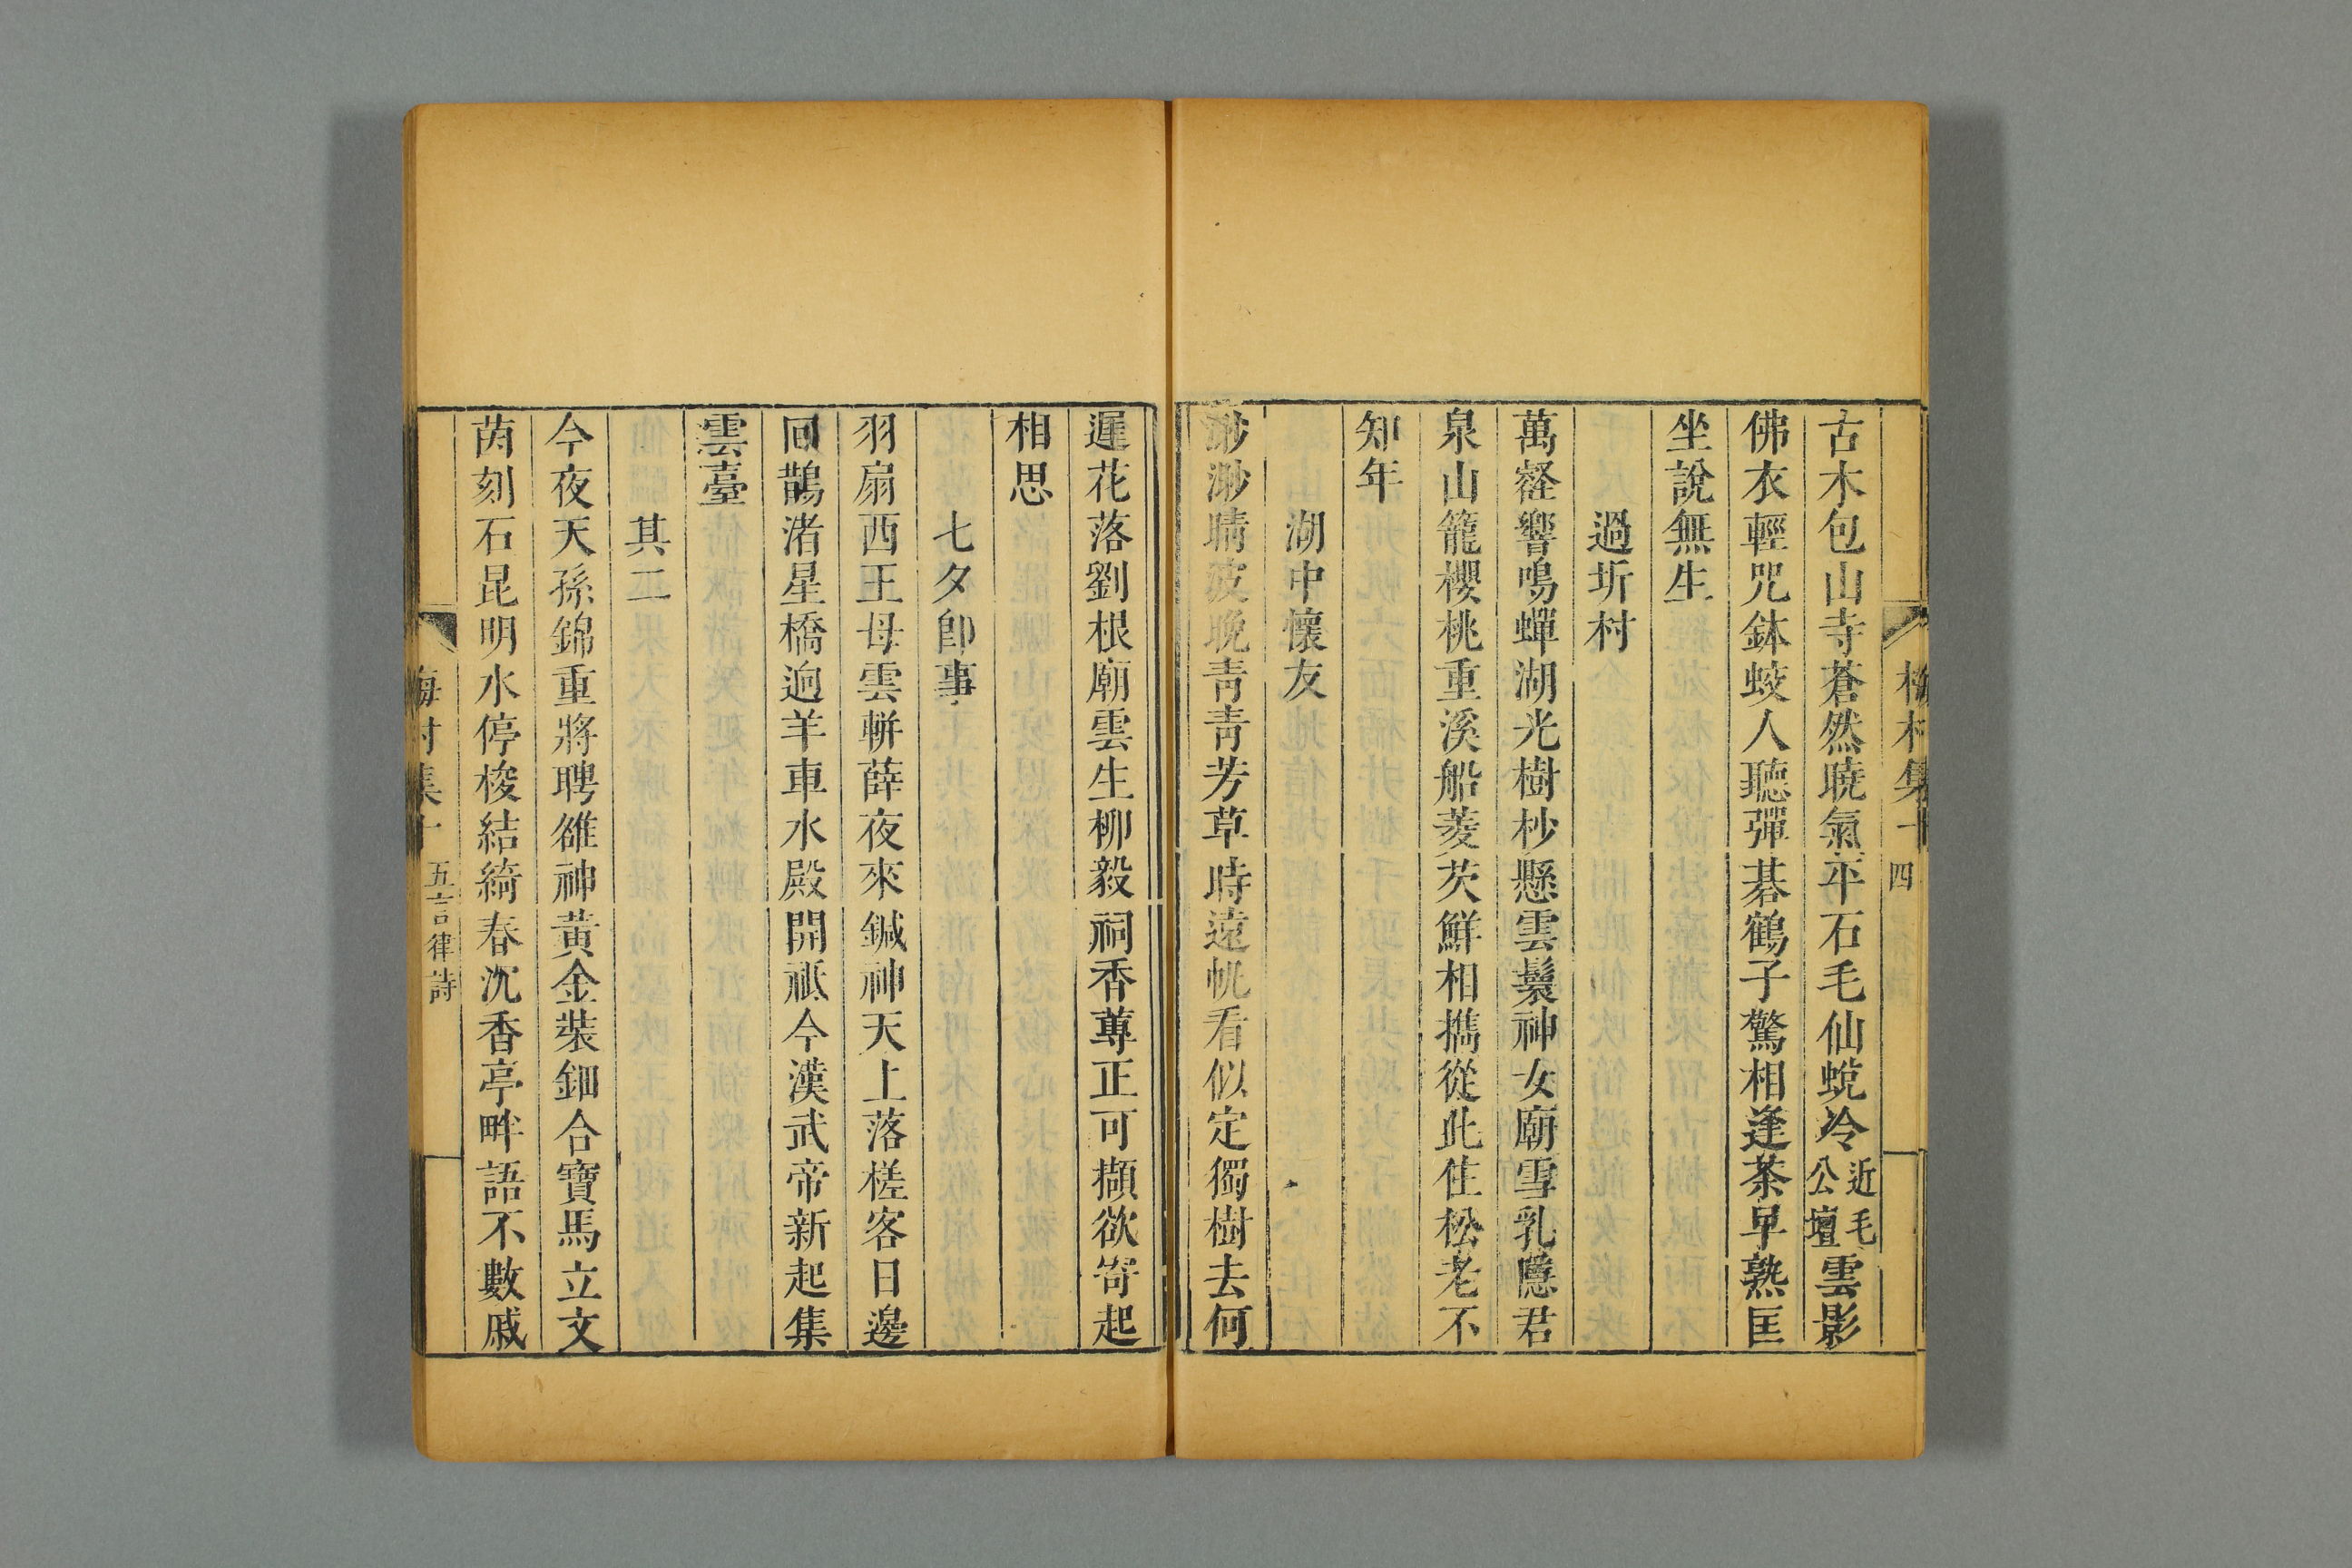 梅村集十
四
古木包山寺蒼然曉氣平石毛仙蛻冷近毛公壇雲影
佛衣輕咒鉢蛟人聽彈碁鶴子驚相逢茶早熟匡
坐說無生
過圻村
萬壑響鳴蟬湖光樹杪懸雲鬟神女廟雪乳隱君
泉山籠櫻桃重溪船菱芡鮮相攜從此住松老不
知年
湖中懷友
渺渺晴波晚青青芳草時遠帆看似定獨樹去何
遲花落劉根廟雲生柳毅祠香蓴正可擷欲寄起
相思
七夕卽事
羽扇西王母雲軿薛夜來鍼神天上落槎客日邊
回鵲渚星橋逈羊車水殿開祗今漢武帝新起集
雲臺
其二
今夜天孫錦重將聘雒神黃金裝鈿合寶馬立文
茵刻石昆明水停梭結綺春沉香亭畔語不數戚
梅村集十
五言律詩